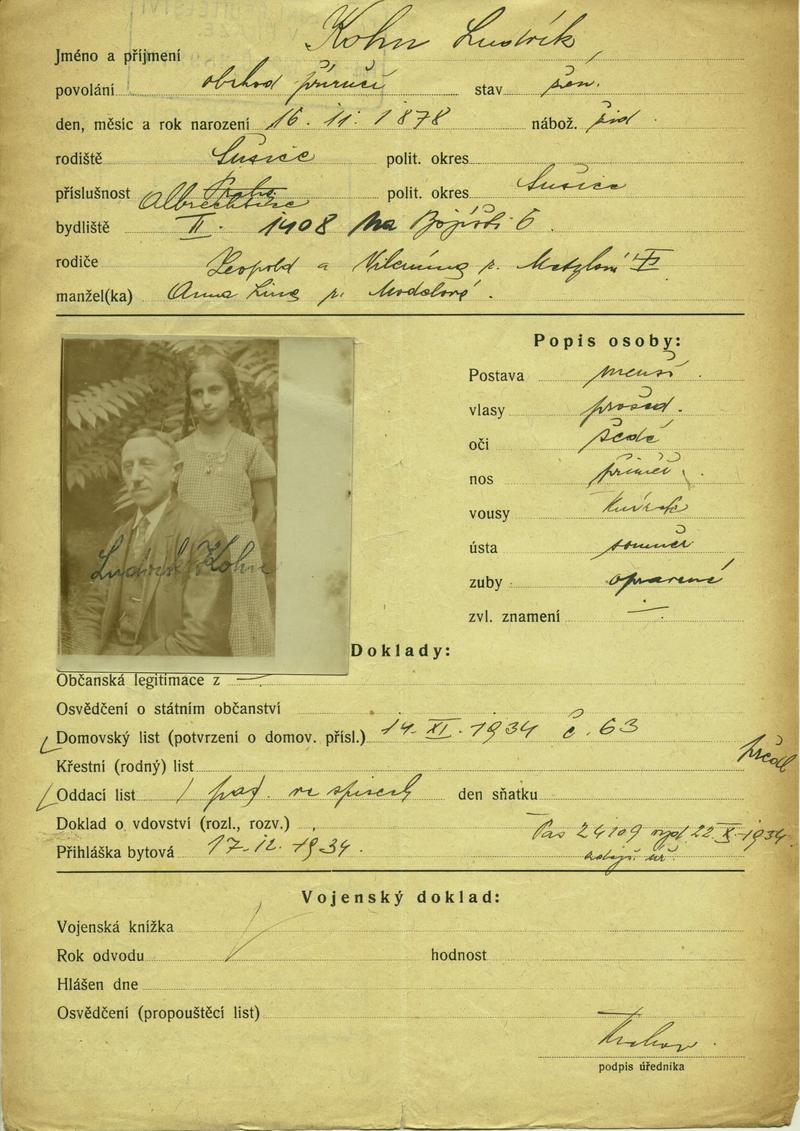 Jméno a příjmení Kohn Ludvík
povolání obchod příručí stav žen.
den, měsíc a rok narození 16. 11. 1878 nábož. žid.
rodiště Sušice polit. okres
příslušnost Praha Albrechtice polit. okres Sušice
bydliště II. 1408 Na Bojišti 6.
rodiče Leopold a Vilemína r.
manžel(ka) Anna r.
Popis osoby:
Postava menší.
vlasy prošed.
oči šedé
nos přiměř.
vousy
ústa souměr
zuby opravené
zvl. znamení —
Ludvík Kohn
Doklady:
Občanská legitimace z —
Osvědčení o státním občanství
Domovský list (potvrzení o domov. přísl.) 14. XI. 1934 č. 63
Křestní (rodný) list
Oddací list ve spisech den sňatku
Doklad o vdovství (rozl., rozv.)
Pas 24109 22 X. 1934
Přihláška bytová 17. 12. 1934.
Vojenský doklad:
Vojenská knížka
Rok odvodu hodnost
Hlášen dne
Osvědčení (propouštěcí list)
podpis úředníka